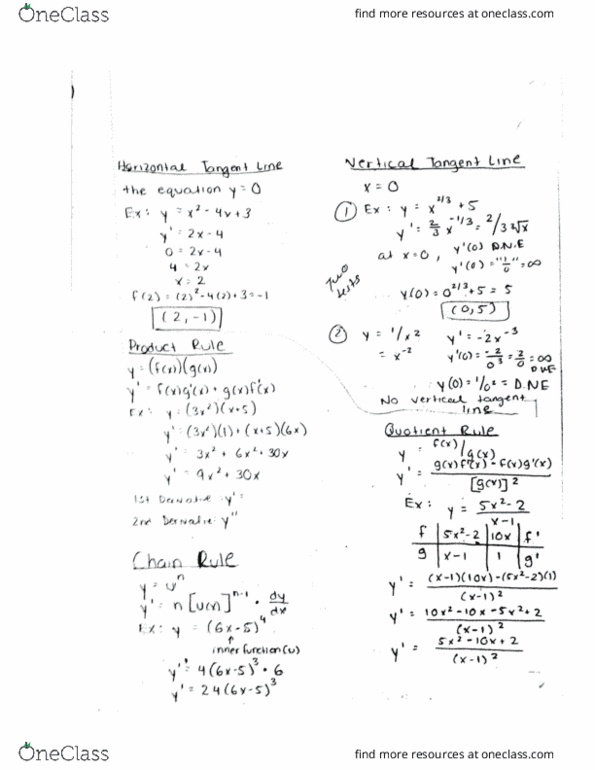 OneClass
find more resources at oneclass.com
)
Horizontal Tangent Line
the equation y=0
Ex: y = x² - 4x+3
y' = 2x - 4
0 = 2x - 4
4 = 2x
x = 2
f(2) = (2)² - 4(2)+3 = -1
(2, -1)
Product Rule
y = (f(x))(g(x))
y' = f(x)g'(x) + g(x)f'(x)
Ex: y = (3x²)(x+5)
y' = (3x²)(1) + (x+5)(6x)
y' = 3x² + 6x² + 30x
y' = 9x² + 30x
1st Derivative: y' =
2nd Derivative: y''
Chain Rule
y = uⁿ
y' = n[u(x)]ⁿ⁻¹ · dy/dx
Ex: y = (6x-5)⁴
↑
inner function (u)
y' = 4(6x-5)³ · 6
y' = 24(6x-5)³
Vertical Tangent Line
x = 0
① Ex: y = x^2/3 + 5
y' = 2/3 x^-1/3 = 2/3 ³√x
at x=0, y'(0) D.N.E
y'(0) = "1/0" = ∞
Two tests
y(0) = 0^2/3 + 5 = 5
(0,5)
② y = 1/x² y' = -2x⁻³
= x⁻² y'(0) = -2/0³ = 2/0 = ∞
DNE
y(0) = 1/0² = D.NE
No vertical tangent
line
Quotient Rule
y = f(x)/g(x)
y' = g(x)f'(x) - f(x)g'(x) / [g(x)]²
Ex: y = 5x²-2 / x-1
f | 5x²-2 | 10x | f'
g | x-1 | 1 | g'
y' = (x-1)(10x) - (5x²-2)(1) / (x-1)²
y' = 10x² - 10x - 5x² + 2 / (x-1)²
y' = 5x² - 10x + 2 / (x-1)²
OneClass
find more resources at oneclass.com